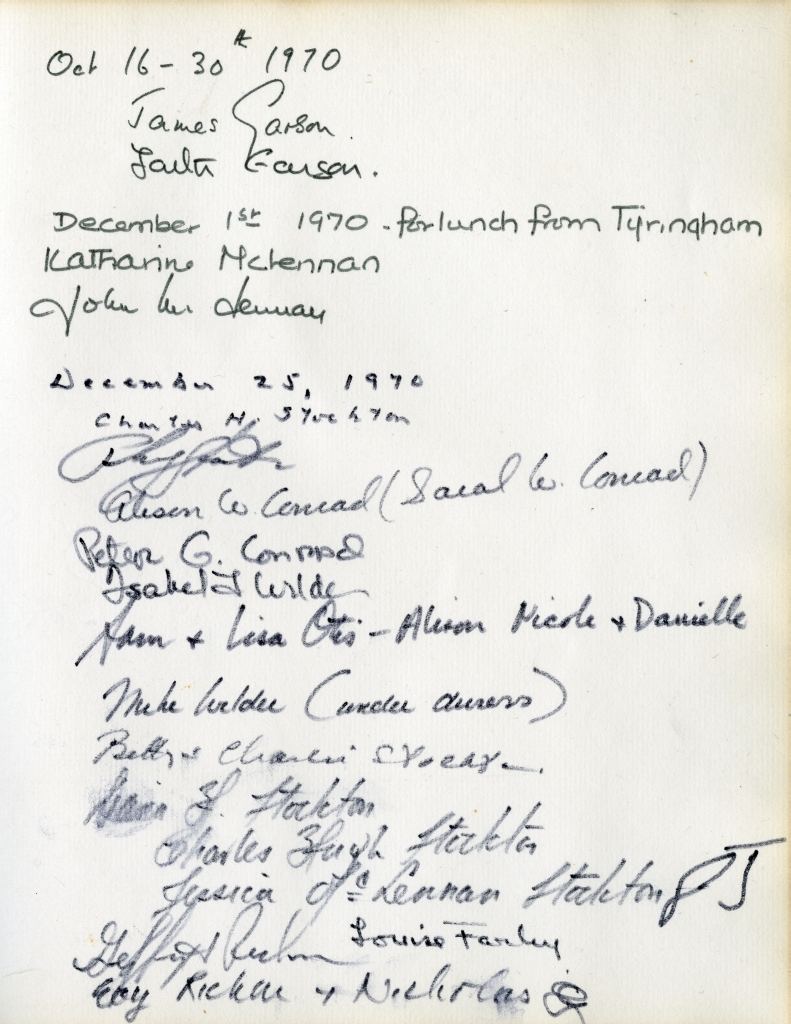 Oct 16 - 30th 1970
James Garson.
Faith Garson.
December 1st 1970 - for lunch from Tyringham
Katharine McLennan
John McLennan
December 25, 1970
Charles H. Stockton
Alison W. Conrad (Sarah W. Conrad)
Peter G. Conrad
Isabel J Wilde
& Lisa Otis - Alison Nicole & Danielle
Mike Wilder (under duress)
Betty & Charlie
F. Stockton
Charles Hugh Stockton
Jessica McLennan Stockton J
Louise Farley
& Nicholas